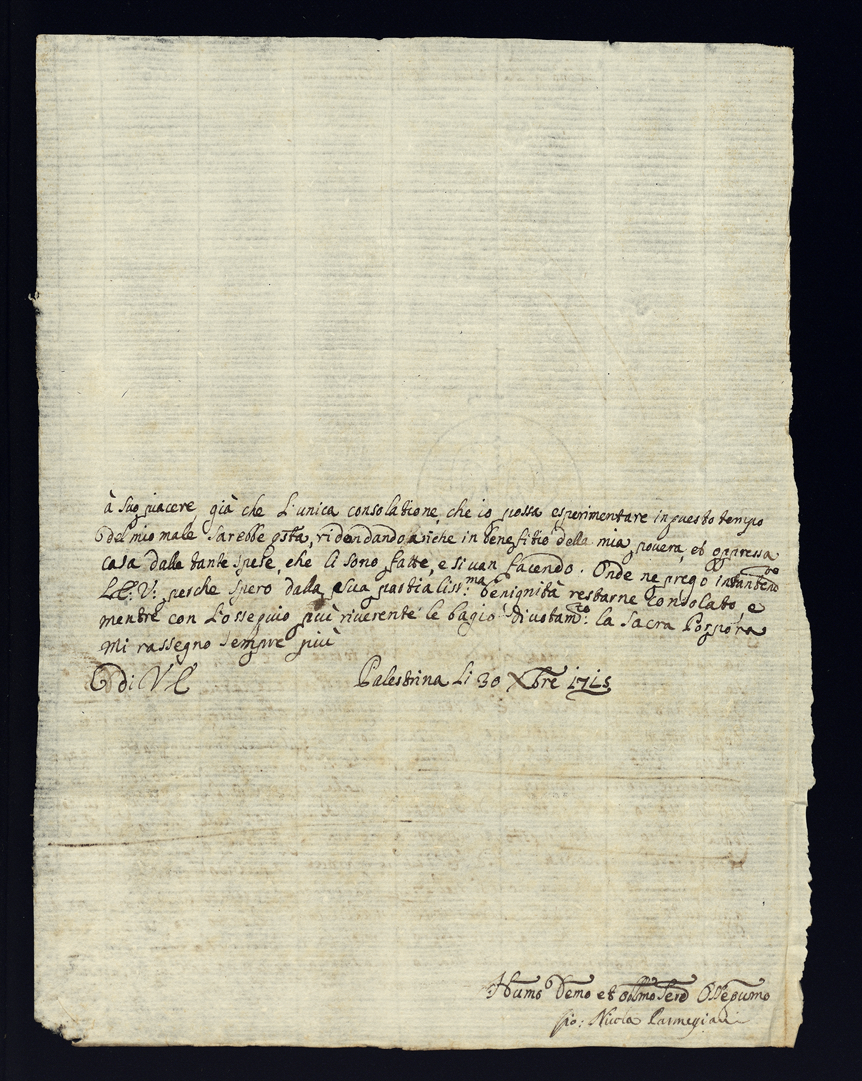 à suo piacere, già che l'unica consolatione, che io possa esperimentare in questo tempo
del mio male sarebbe q.sta, ridondando anche in benefitio della mia povera, et oppressa
casa dalle tante spese, che si sono fatte, e si van facendo. Onde ne prego instantem.te
L'E: V: perche spero dalla sua partialiss.ma benignità restarne consolato, e
mentre con l'ossequio più riverente le bagio divotam.te la Sacra Porpora
mi rassegno sempre più
di V E
Palestrina li 30 Xbre 1715
Humo Demo et Serre Ossequmo
Gio: Nicola Parmegiani